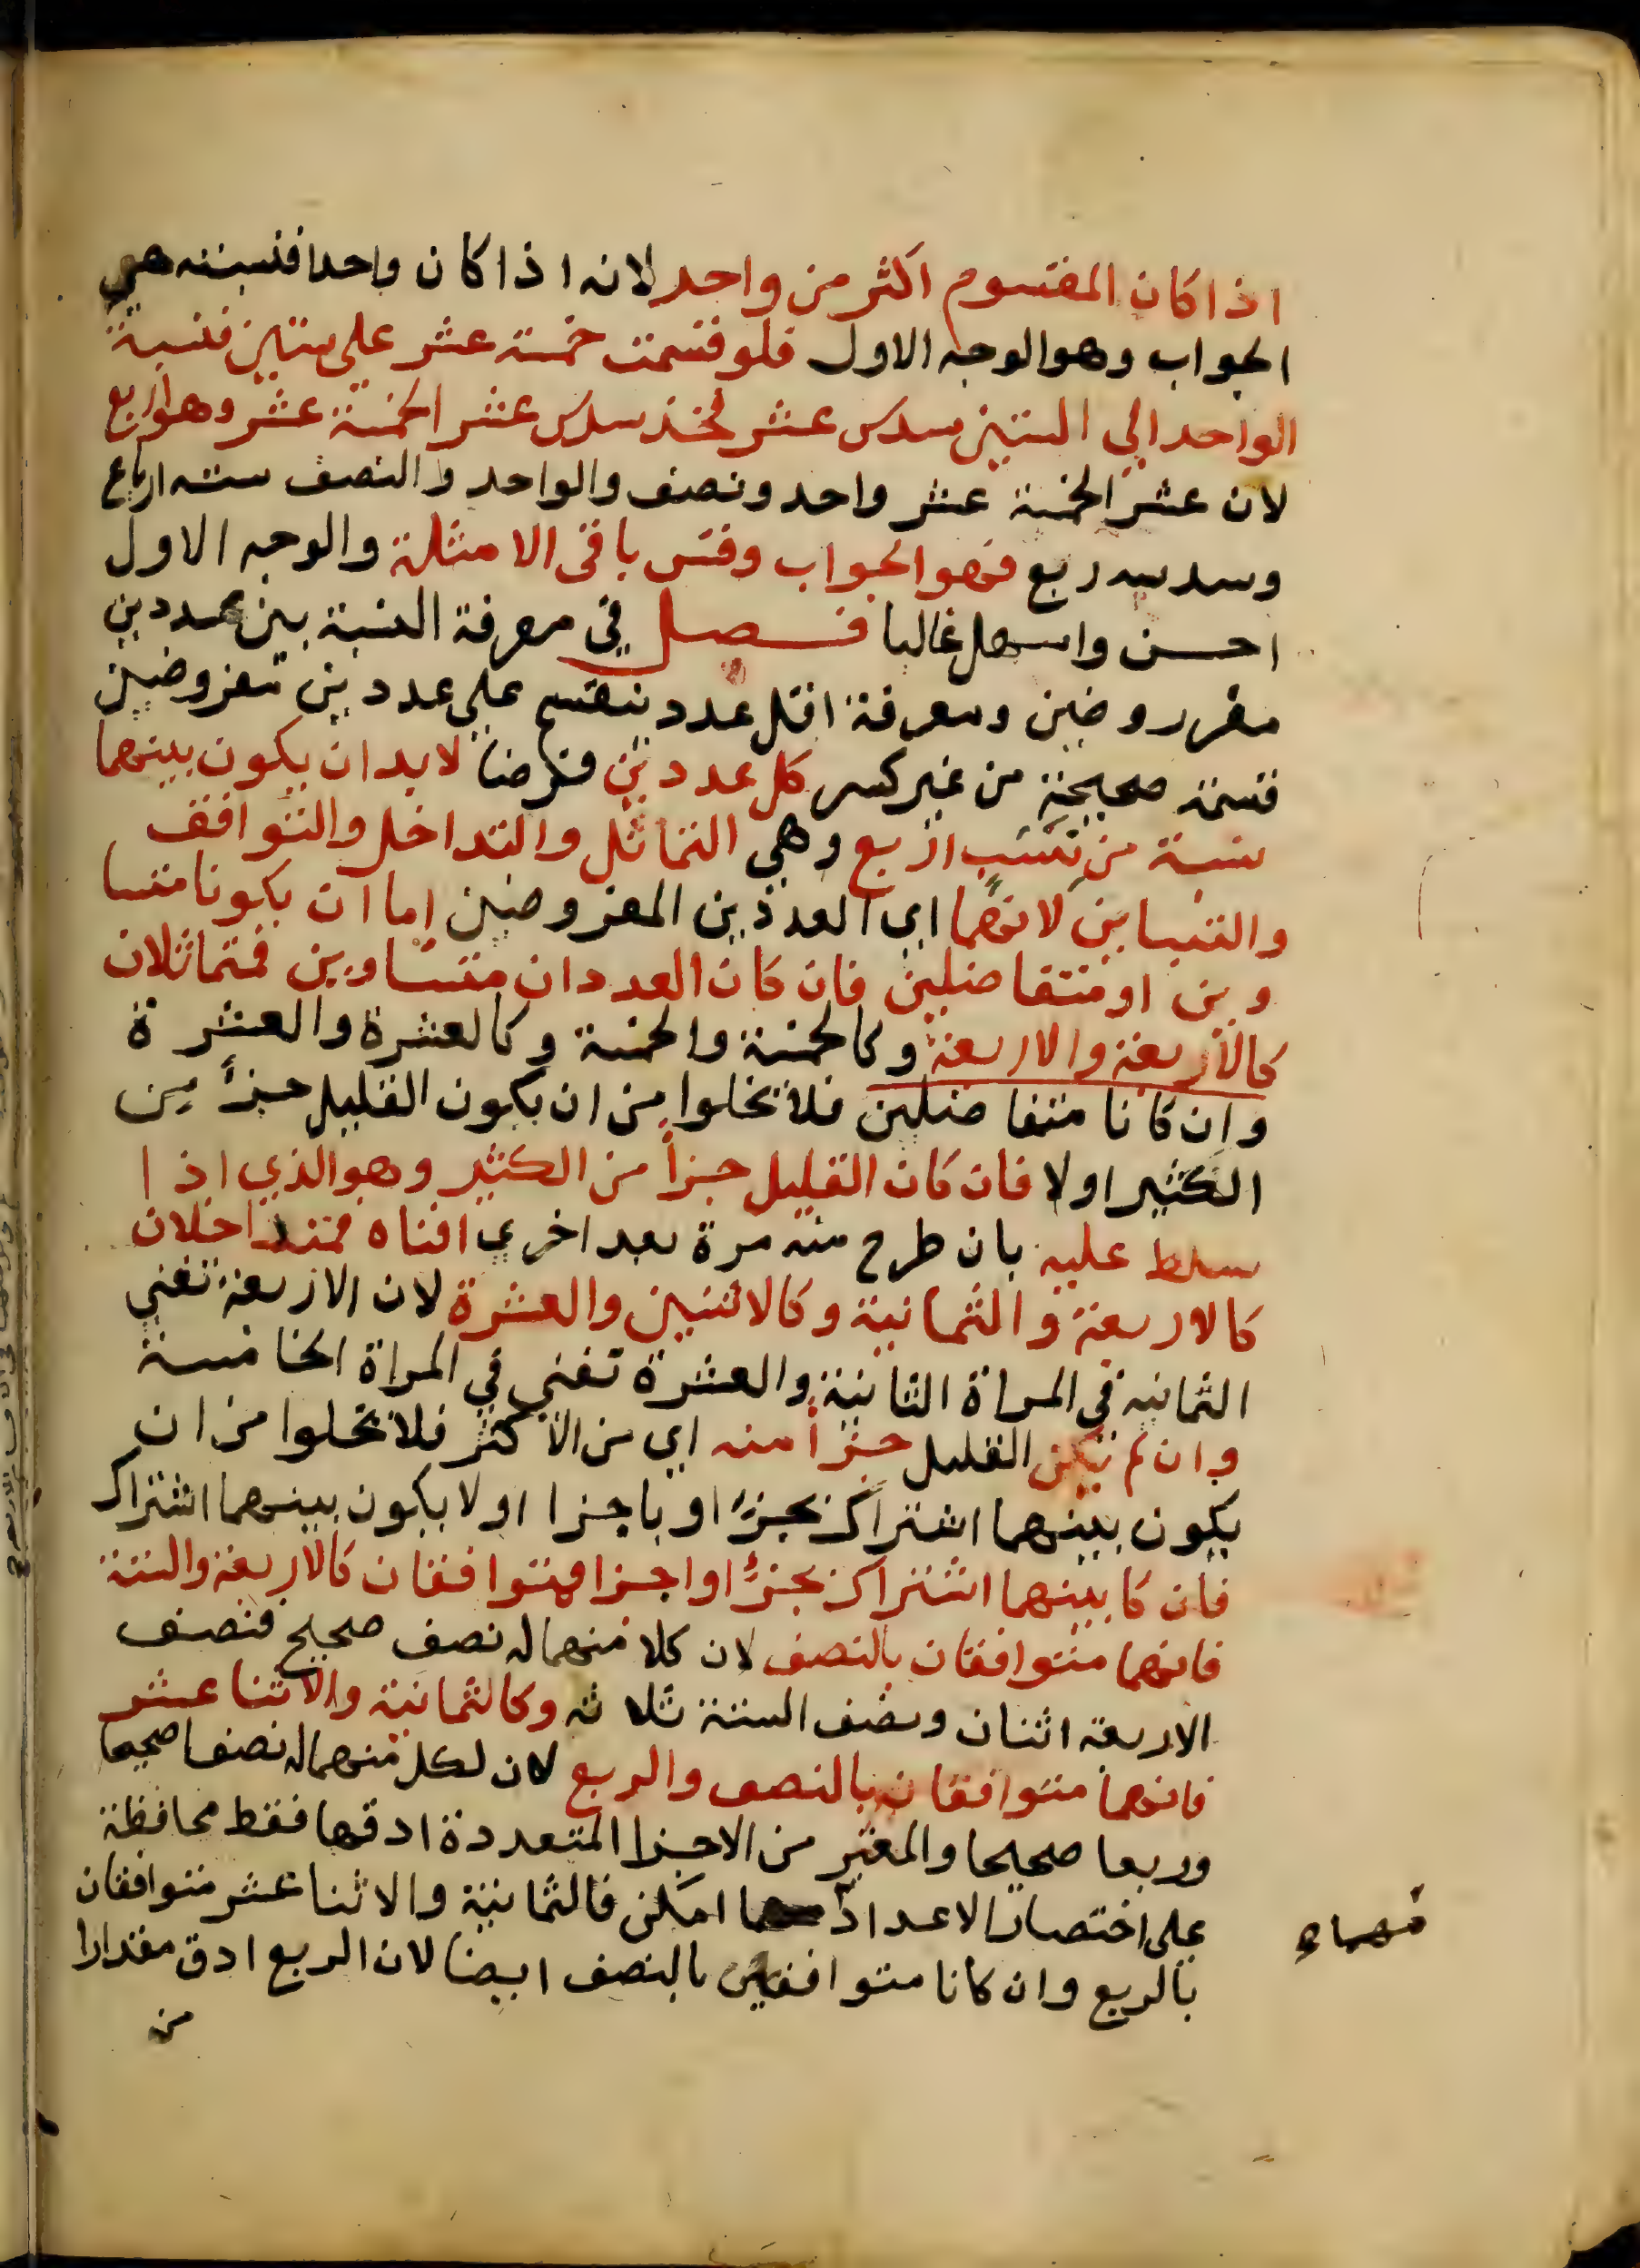 اذا كان المقسوم اكثر من واحد لانه اذا كان واحدا فنسبته هي
الجواب وهو الوجه الاول فلو قسمت خمسة عشر على ستين فنسبة
الواحد الي الستين سدس عشر فخذ سدس عشر الخمسة عشر وهو ربع
لان عشر الخمسة عشر واحد ونصف والواحد والنصف ستة ارباع
وسدسه ربع فهو الجواب وقس باقى الامثلة والوجه الاول
احسن واسهل غالبا فصل في معرفة النسبة بين عددين
مفرروضين ومعرفة اقل عدد ينقسم علي عددين مفروضين
قسمة صحيحة من غير كسر كل عددين فرضا لابد ان يكون بينهما
نسبة من نسب اربع وهي التماثل والتداخل والتوافق
والتباين لانهما اي العددين المفروضين اما ان يكونا متسا
وين او متفاضلين فان كان العددان متساوين فمتماثلان
كالاربعة والاربعة وكالخمسة والخمسة وكالعشرة والعشرة
وان كانا متفاضلين فلا تخلوا من ان يكون القليل جزأ من
الكثير اولا فان كان القليل جزأ من الكثير وهو الذي اذا
سلط عليه بان طرح منه مرة بعد اخري افناه فمتداخلان
كالاربعة والثمانية وكالاثنين والعشرة لان الاربعة تفني
الثمانية في المراة الثانية والعشرة تفني في المراة الخامسة
وان لم يكن القليل جزأ منه اي من الاكثر فلا تخلوا من ان
يكون بينهما اشتراك بجزء او باجزا اولا يكون بينهما اشتراك
فان كا بينهما اشتراك بجزء او اجزا فمتوافقان كالاربعة والستة
فانهما متوافقان بالنصف لان كلا منهما له نصف صحيح فنصف
الاربعة اثنان ونصف الستة ثلاثة وكالثمانية والاثنا عشر
فانهما متوافقان بالنصف والربع لان لكل منهما له نصفا صحيحا
وربعا صحيحا والمعتبر من الاجزا المتعددة ادقها فقط محافظة
على اختصار الاعداد امكن فالثمانية والاثنا عشر متوافقان
بالربع وان كانا متوافقين بالنصف ايضا لان الربع ادق مقدارا
من